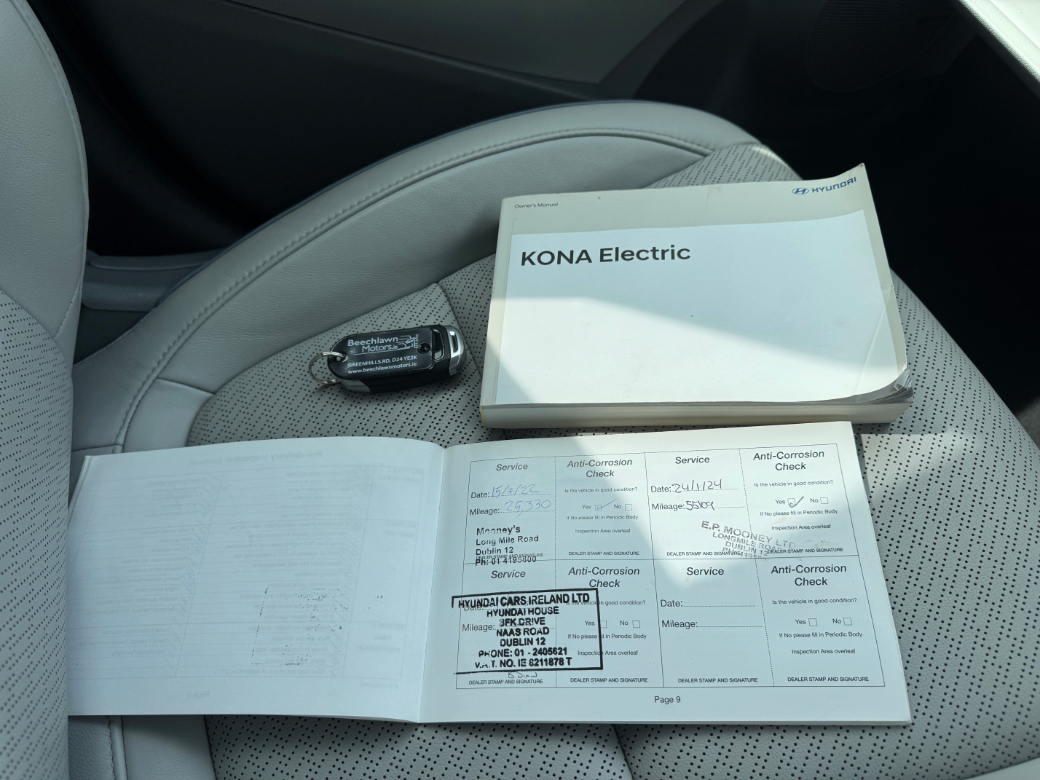 Owner's Manual
HYUNDAI
KONA Electric
Beechlawn
Motors.ie
GREENHILLS RD, D24 YE2K
www.beechlawnmotors.ie
Service
Date: 15/4/22
Mileage: 25,330
Mooney's
Long Mile Road
Dublin 12
Ph: 01 4195600
DEALER STAMP AND SIGNATURE
Anti-Corrosion
Check
Is the vehicle in good condition?
Yes No
If No please fill in Periodic Body
Inspection Area overleaf
DEALER STAMP AND SIGNATURE
Service
Date: 24/1/24
Mileage:
E.P. MOONEY LTD
LONGMILE ROAD
DUBLIN 12
DEALER STAMP AND SIGNATURE
Anti-Corrosion
Check
Is the vehicle in good condition?
Yes No
If No please fill in Periodic Body
Inspection Area overleaf
DEALER STAMP AND SIGNATURE
Service
Date:
Mileage:
HYUNDAI CARS IRELAND LTD
HYUNDAI HOUSE
JFK DRIVE
NAAS ROAD
DUBLIN 12
PHONE: 01 - 2405621
V.A.T. NO. IE 6211878 T
DEALER STAMP AND SIGNATURE
Anti-Corrosion
Check
Is the vehicle in good condition?
Yes No
If No please fill in Periodic Body
Inspection Area overleaf
DEALER STAMP AND SIGNATURE
Service
Date:
Mileage:
DEALER STAMP AND SIGNATURE
Anti-Corrosion
Check
Is the vehicle in good condition?
Yes No
If No please fill in Periodic Body
Inspection Area overleaf
DEALER STAMP AND SIGNATURE
Page 9